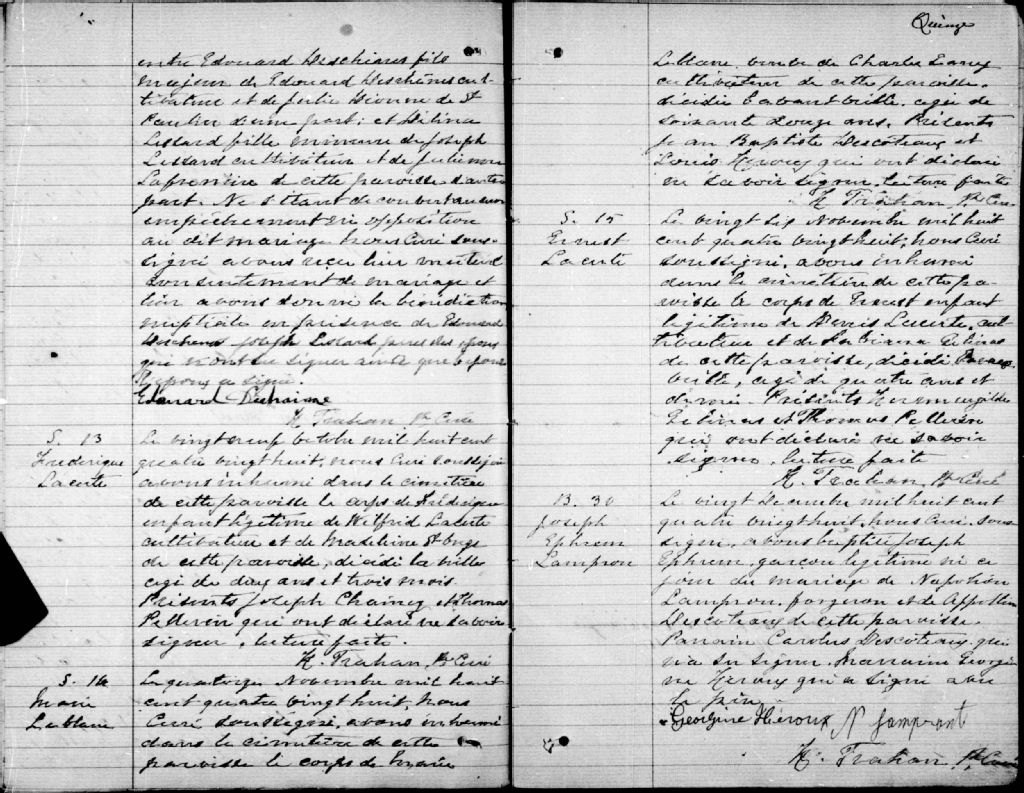 entre Edouard Deschenes fils
majeur de Edouard Deschênes cul-
tivateur et de Julie Vivonne de St
Paulin d'une part; et Délina
Lessard fille mineure de Joseph
Lessard cultivateur et de Julienne
Lafrenière de cette paroisse d'autre
part. Ne s'étant découvert aucun
empêchement ni opposition
au dit mariage Nous Curé sous-
signé avons reçu leur mutuel
consentement de mariage et
leur avons donné la bénédiction
nuptiale en présence de Edouard
Deschenes Joseph Lessard pères des époux
qui n'ont su signer ainsi que l'épouse
l'époux a signé.
Edouard Duhaime
H. Trahan Ptr Curé
S. 13
Frédérique
Lacerte
Le vingt neuf octobre mil huit cent
quatre vingt huit, nous Curé soussigné
avons inhumé dans le cimetière
de cette paroisse le corps de Frédérique
enfant légitime de Wilfrid Lacerte
cultivateur et de Madeleine St Onge
de cette paroisse, décédé la veille
agé de deux ans et trois mois
Présents Joseph Chainey et Thomas
Pellerin qui ont déclaré ne savoir
signer. lecture faite.
H. Trahan, Ptr Curé
S. 14
Marie
Leblanc
Le quatorze Novembre mil huit
cent quatre vingt huit, nous
Curé soussigné, avons inhumé
dans le cimetière de cette
paroisse le corps de Marie
Quinze
Leblanc veuve de Charles
cultivateur de cette paroisse.
décédée l'avant veille. agée de
soixante douze ans. Présents
Jean Baptiste Descoteaux et
Louis Heroux qui ont déclaré
ne savoir signer. lecture faite
H. Trahan, Ptr Curé
S. 15
Ernest
Lacerte
Le vingt six Novembre mil huit
cent quatre vingt huit; nous Curé
soussigné, avons inhumé
dans le cimetière de cette pa-
roisse le corps de Ernest enfant
légitime de Denis Lacerte, cul-
tivateur et de Fabiana Gelinas
de cette paroisse, décédé l'avant
veille, agé de quatre ans et
demi. Présents Hermenegilde
Gelinas et Thomas Pellerin
qui ont déclaré ne savoir
signer. lecture faite
H. Trahan, Ptr Curé
B. 30
Joseph
Ephrem
Lampron
Le vingt Decembre mil huit cent
quatre vingt huit, nous Curé, sous-
signé, avons baptisé Joseph
Ephrem, garçon légitime né ce
jour du mariage de Napoléon
Lampron, forgeron et de Appolline
Descoteaux de cette paroisse.
Parrain Carolus Descoteaux qui
n'a su signer. Marraine Georgi-
ne Heroux qui a signé avec
le père.
Georgine Héroux N Lampront
H. Trahan Ptr Curé